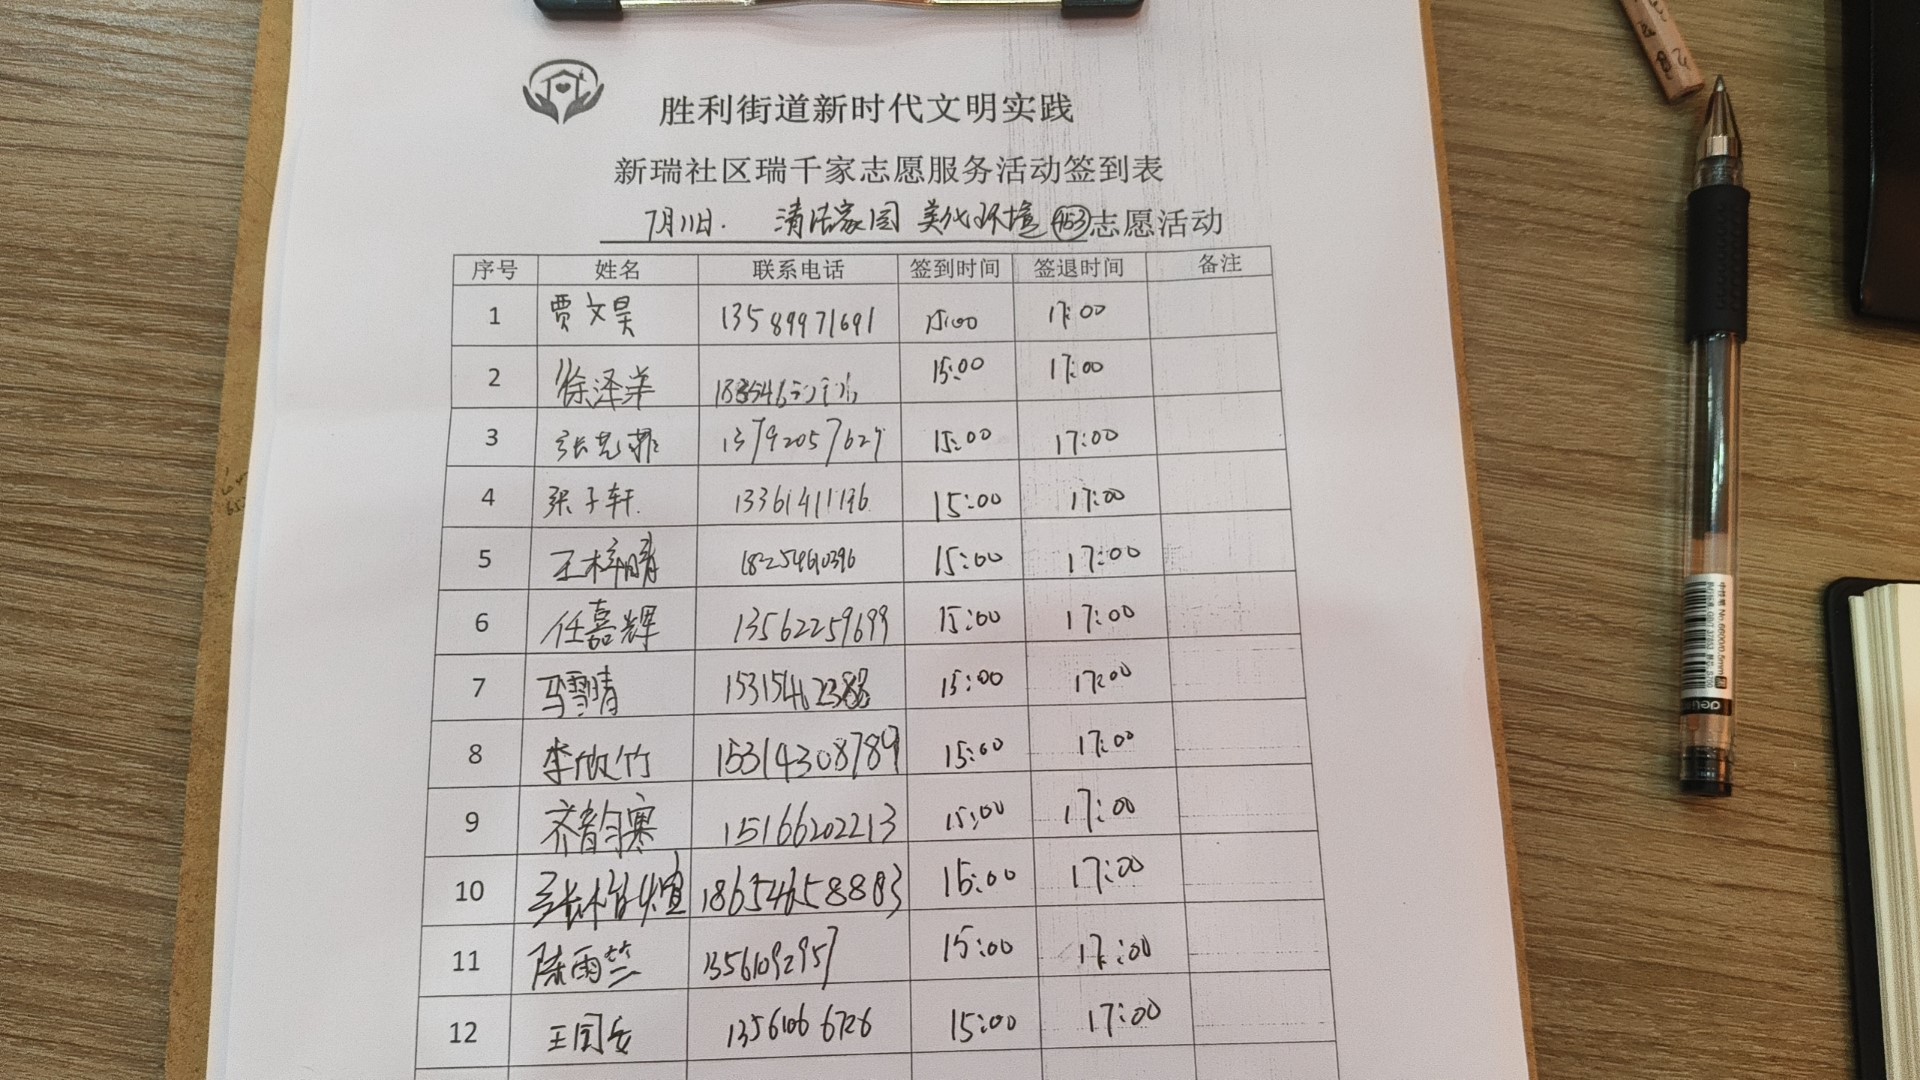 胜利街道新时代文明实践
新瑞社区瑞千家志愿服务活动签到表
7月11日. 清洁家园 美化环境 453 志愿活动
序号 姓名 联系电话 签到时间 签退时间 备注
1 贾文昊 13589971691 15:00 17:00
2 徐泽洋 15:00 17:00
3 张艺菲 13792057627 15:00 17:00
4 张子轩. 13361411196 15:00 17:00
5 王梓晴 18254610396 15:00 17:00
6 任嘉辉 13562259699 15:00 17:00
7 马雪晴 15:00 17:00
8 李欣竹 15314308789 15:00 17:00
9 齐韵寒 15166202213 15:00 17:00
10 18654658883 15:00 17:00
11 陈雨竺 13561092957 15:00 17:00
12 13561066726 15:00 17:00
deli